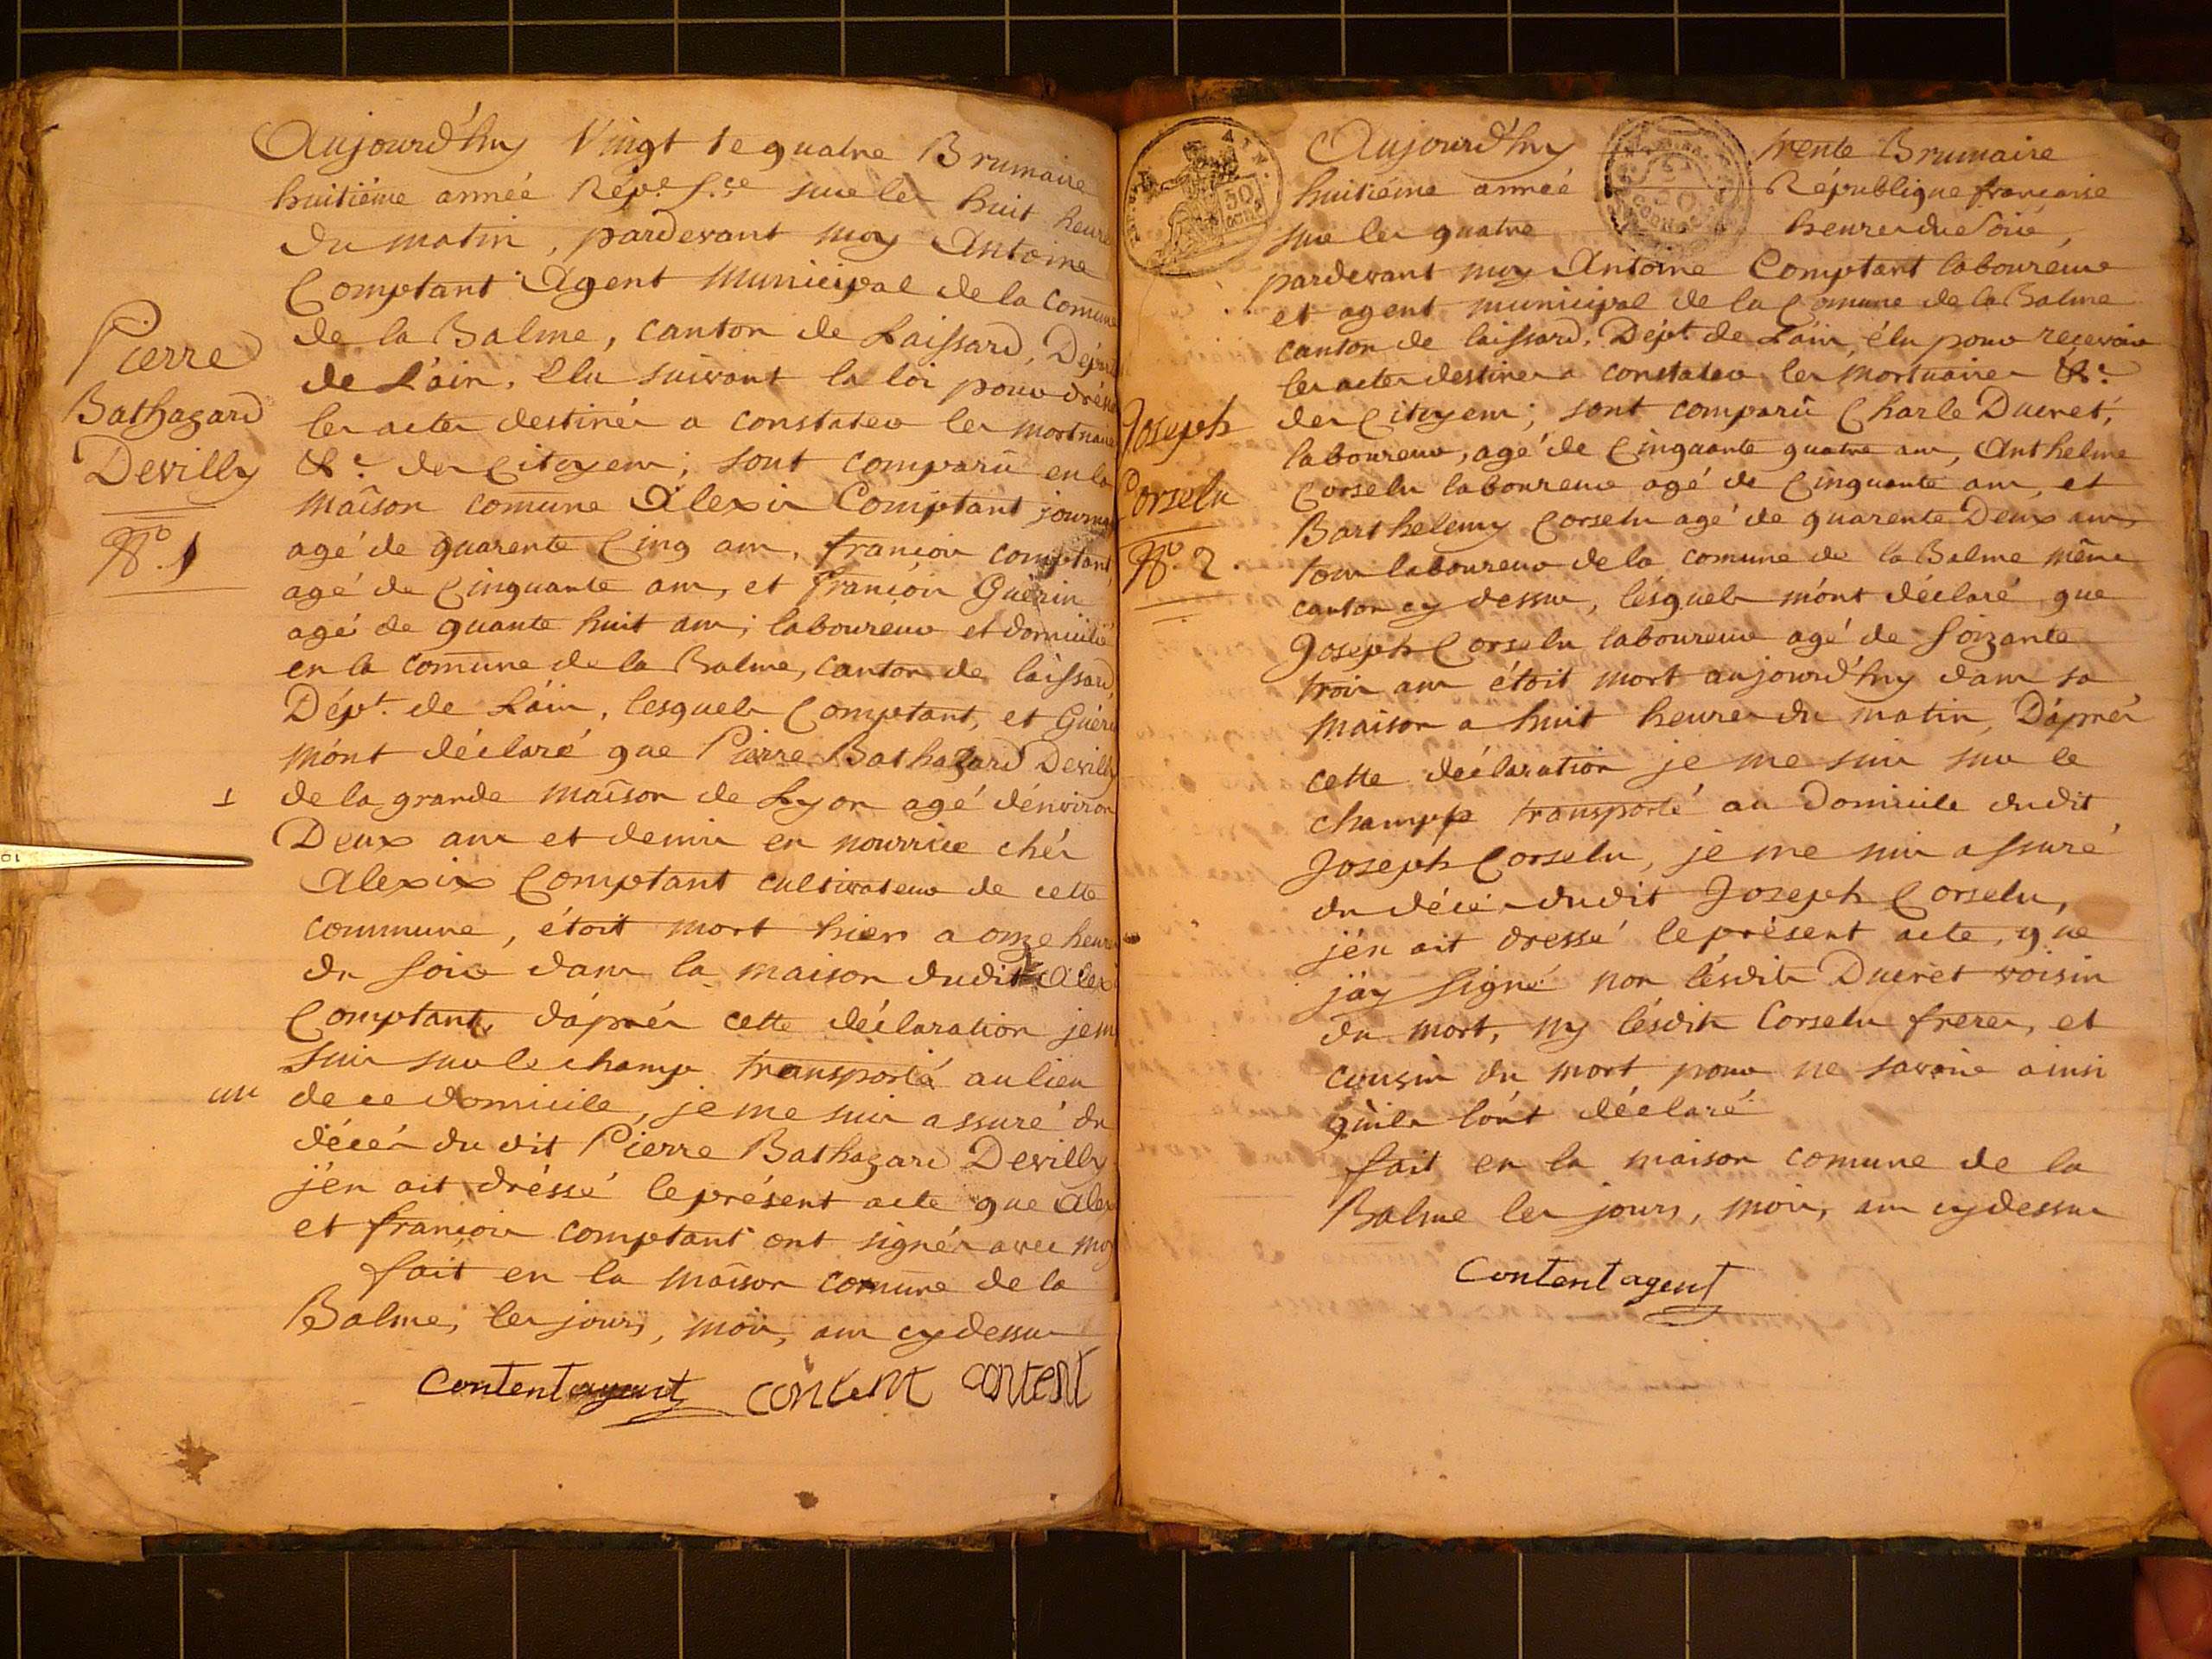 Aujourd'huy Vingt te quatre Brumaire
huitiéme année Rép.e f.se sur les huit heure
du matin, pardevant moy Antoine
Comptant Agent Municipal de la Comune
de la Balme, canton de Laissard, Dépt
de L'ain, élu suivant la loi pour drésser
les actes destinés a constater les mortuaires
&c. des Citoyens; sont comparû en la
maîson comune Alexis Comptant journa
agé de quarente Cinq ans, françois comptant
agé de Cinquante ans, et françois Guérin
agé de quante huit ans; laboureur et domicilié
en la comune de la Balme, canton de laissard,
Dépt. de L'ain, lesquels Comptant, et Guérin
m'ont déclaré que Pierre Bathazard Devilly
1 de la grande maîson de Lyon agé d'énviron
Deux ans et demis en nourrice chés
Alexix Comptant cultivateur de cette
commune, étoit mort hier a onze heure
du soir dans la maison dudit Alexi
Comptant, d'aprés cette déclaration je m
suis sur le champ transporté au lieu
un de ce domicile, je me suis assuré du
décés du dit Pierre Bathazard Devilly
j'én ait dréssé le présent acte que Alex
et françois comptant ont signés avec moy
fait en la maîson comune de la
Balme, les jours, mois, ans cy dessus
Content agent content content
Pierre
Bathazard
Devilly
No. 1
Aujourd'huy trente Brumaire
huitiéme année République françoise
sur les quatre heures du Soir,
pardevant moy Antoine Comptant laboureur
et agent municipal de la Comune de la Balme
canton de laissard, Dépt. de L'ain, élu pour reçevoir
les actes destines a constater les mortuaires &c.
des Citoyens; sont comparû Charle Ducret,
laboureur, agé de Cinquante quatre ans, Anthelme
Corselu laboureur agé de Cinquante ans, et
Barthelemy Corselu agé de quarente Deux ans,
tous laboureur de la comune de la Balme même
canton cy dessus, lésquels m'ont déclaré que
Joseph Corselu laboureur agé de Soizante
trois ans étoit mort aujourd'huy dans sa
maison a huit heures du matin, D'aprés
cette déclaration je me suis sur le
champp transporté au Domicile dudit
Joseph Corselu, je me suis assuré
du décé dudit Jozeph Corselu,
j'én ait dressé le présent acte, que
j'ay signé non lésdits Ducret voisin
du mort, ny lésdits Corselu freres, et
cousin du mort pour ne savoir ainsi
qu'ils l'ont déclaré
fait en la maison comune de la
Balme les jours, mois, ans cy dessus
Content agent
Joseph
Corselu
No. 2.